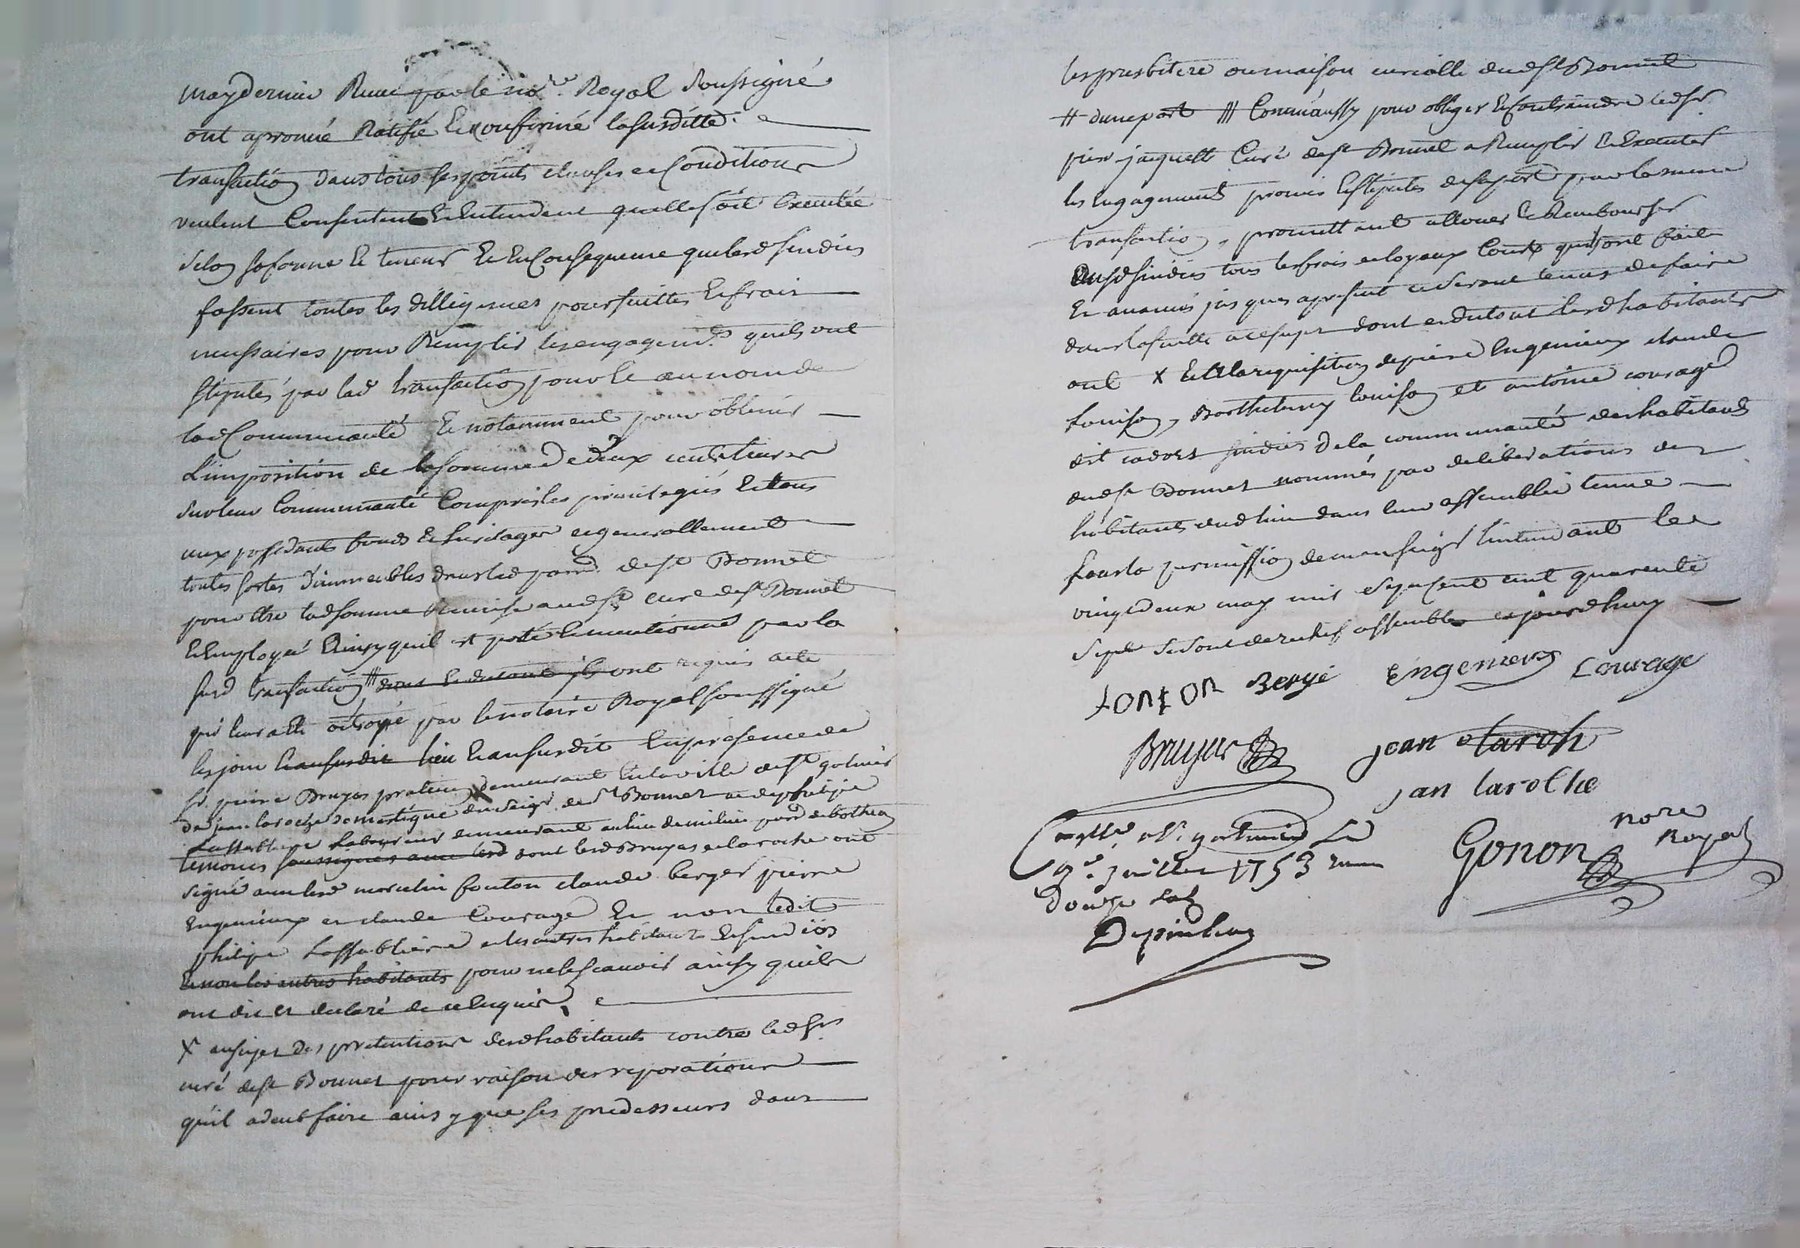 may dernier Recu par le no.re Royal Soussigné
ont aprouvé Ratifié et confirmé la susditte
transaction dans tous ses points clauses et Conditions
veulent Consentent et Entendent quelle soit Executée
selon sa forme et teneur Et en Consequence que lesd sindics
fassent toutes les dilligences poursuittes et frais
necessaires pour Remplir les engagem.ts quils ont
stipulés par lad transaction pour le au nom de
lad Communauté Et notamment pour obtenir
L'imposition de la somme de deux cent livres
sur leur Communauté Compris les privilegiés Et tous
ceux possedants fonds et heritages et generallement
toutes sortes d'immeubles dans lad parr. de st Bonnet
pour Etre lad somme Remise aud sr curé de st Bonnet
et Employé Ainsy quil est porté et mentionné par la
susd transaction # dont et du tout ils ont requis acte
qui leur a été octroyé par le notaire Royal soussigné
les jour et an susdit lieu et an susdit En presence de
sr pierre Bruyas praticien demeurant en la ville de st galmier
de jean laroche domestique du seigr de st Bonnet et de philipe
Lassabliere Laboureur demeurant au lieu de milieu parr de botheon
temoins soussignes avec lesd dont lesd Bruyas et laroche ont
signé avec lesd marcelin fonton claude berger pierre
Engenieux et claude Courage Et non ledit
philipe Lassabliere et les autres habitants Et sindics
Et non les autres habitants pour ne le scavoir ainsy quils
ont dit et declaré de ce Enquis
X au sujet des pretentions desd habitants contre led sr
curé de st Bonnet pour raison des reparations
quil a deub faire ainsy que ses predesseurs dans
les presbitere ou maison curialle dud st Bonnet
# dune part /// Comme aussy pour obliger et Contraindre led sr
pierre jacquett Curé de st Bonnet a Remplir et Executer
les Engagements promis et stipulés de sa part par la meme
transaction, promettant allouer et Rembourser
auxd sindics tous les frais et loyaux Couts quils ont fait
Et avancés jus ques a present et seront tenus de faire
dans la suitte a ce sujet dont et du tout lesd habitants
ont X Et a la requisition de pierre Engenieux claude
Louison, Barthelemy louison et antoine courage
dit cadet sindics de la communauté des habitants
dud st Bonnet nommés par deliberations des
habitants dud lieu dans leur assemblée tenue
sous la permission de monseigr l'intendant le
vingt deux may mil sept cent cinq quarente
sept se sont derechef assemblés cejourdhuy
fonton Berge Engenieux Courage
Bruyas jean laroch
jan laroche
Contllé a st galmier Le
9e juillet 1753 recu
Douze sols
Gonon nore
Royal